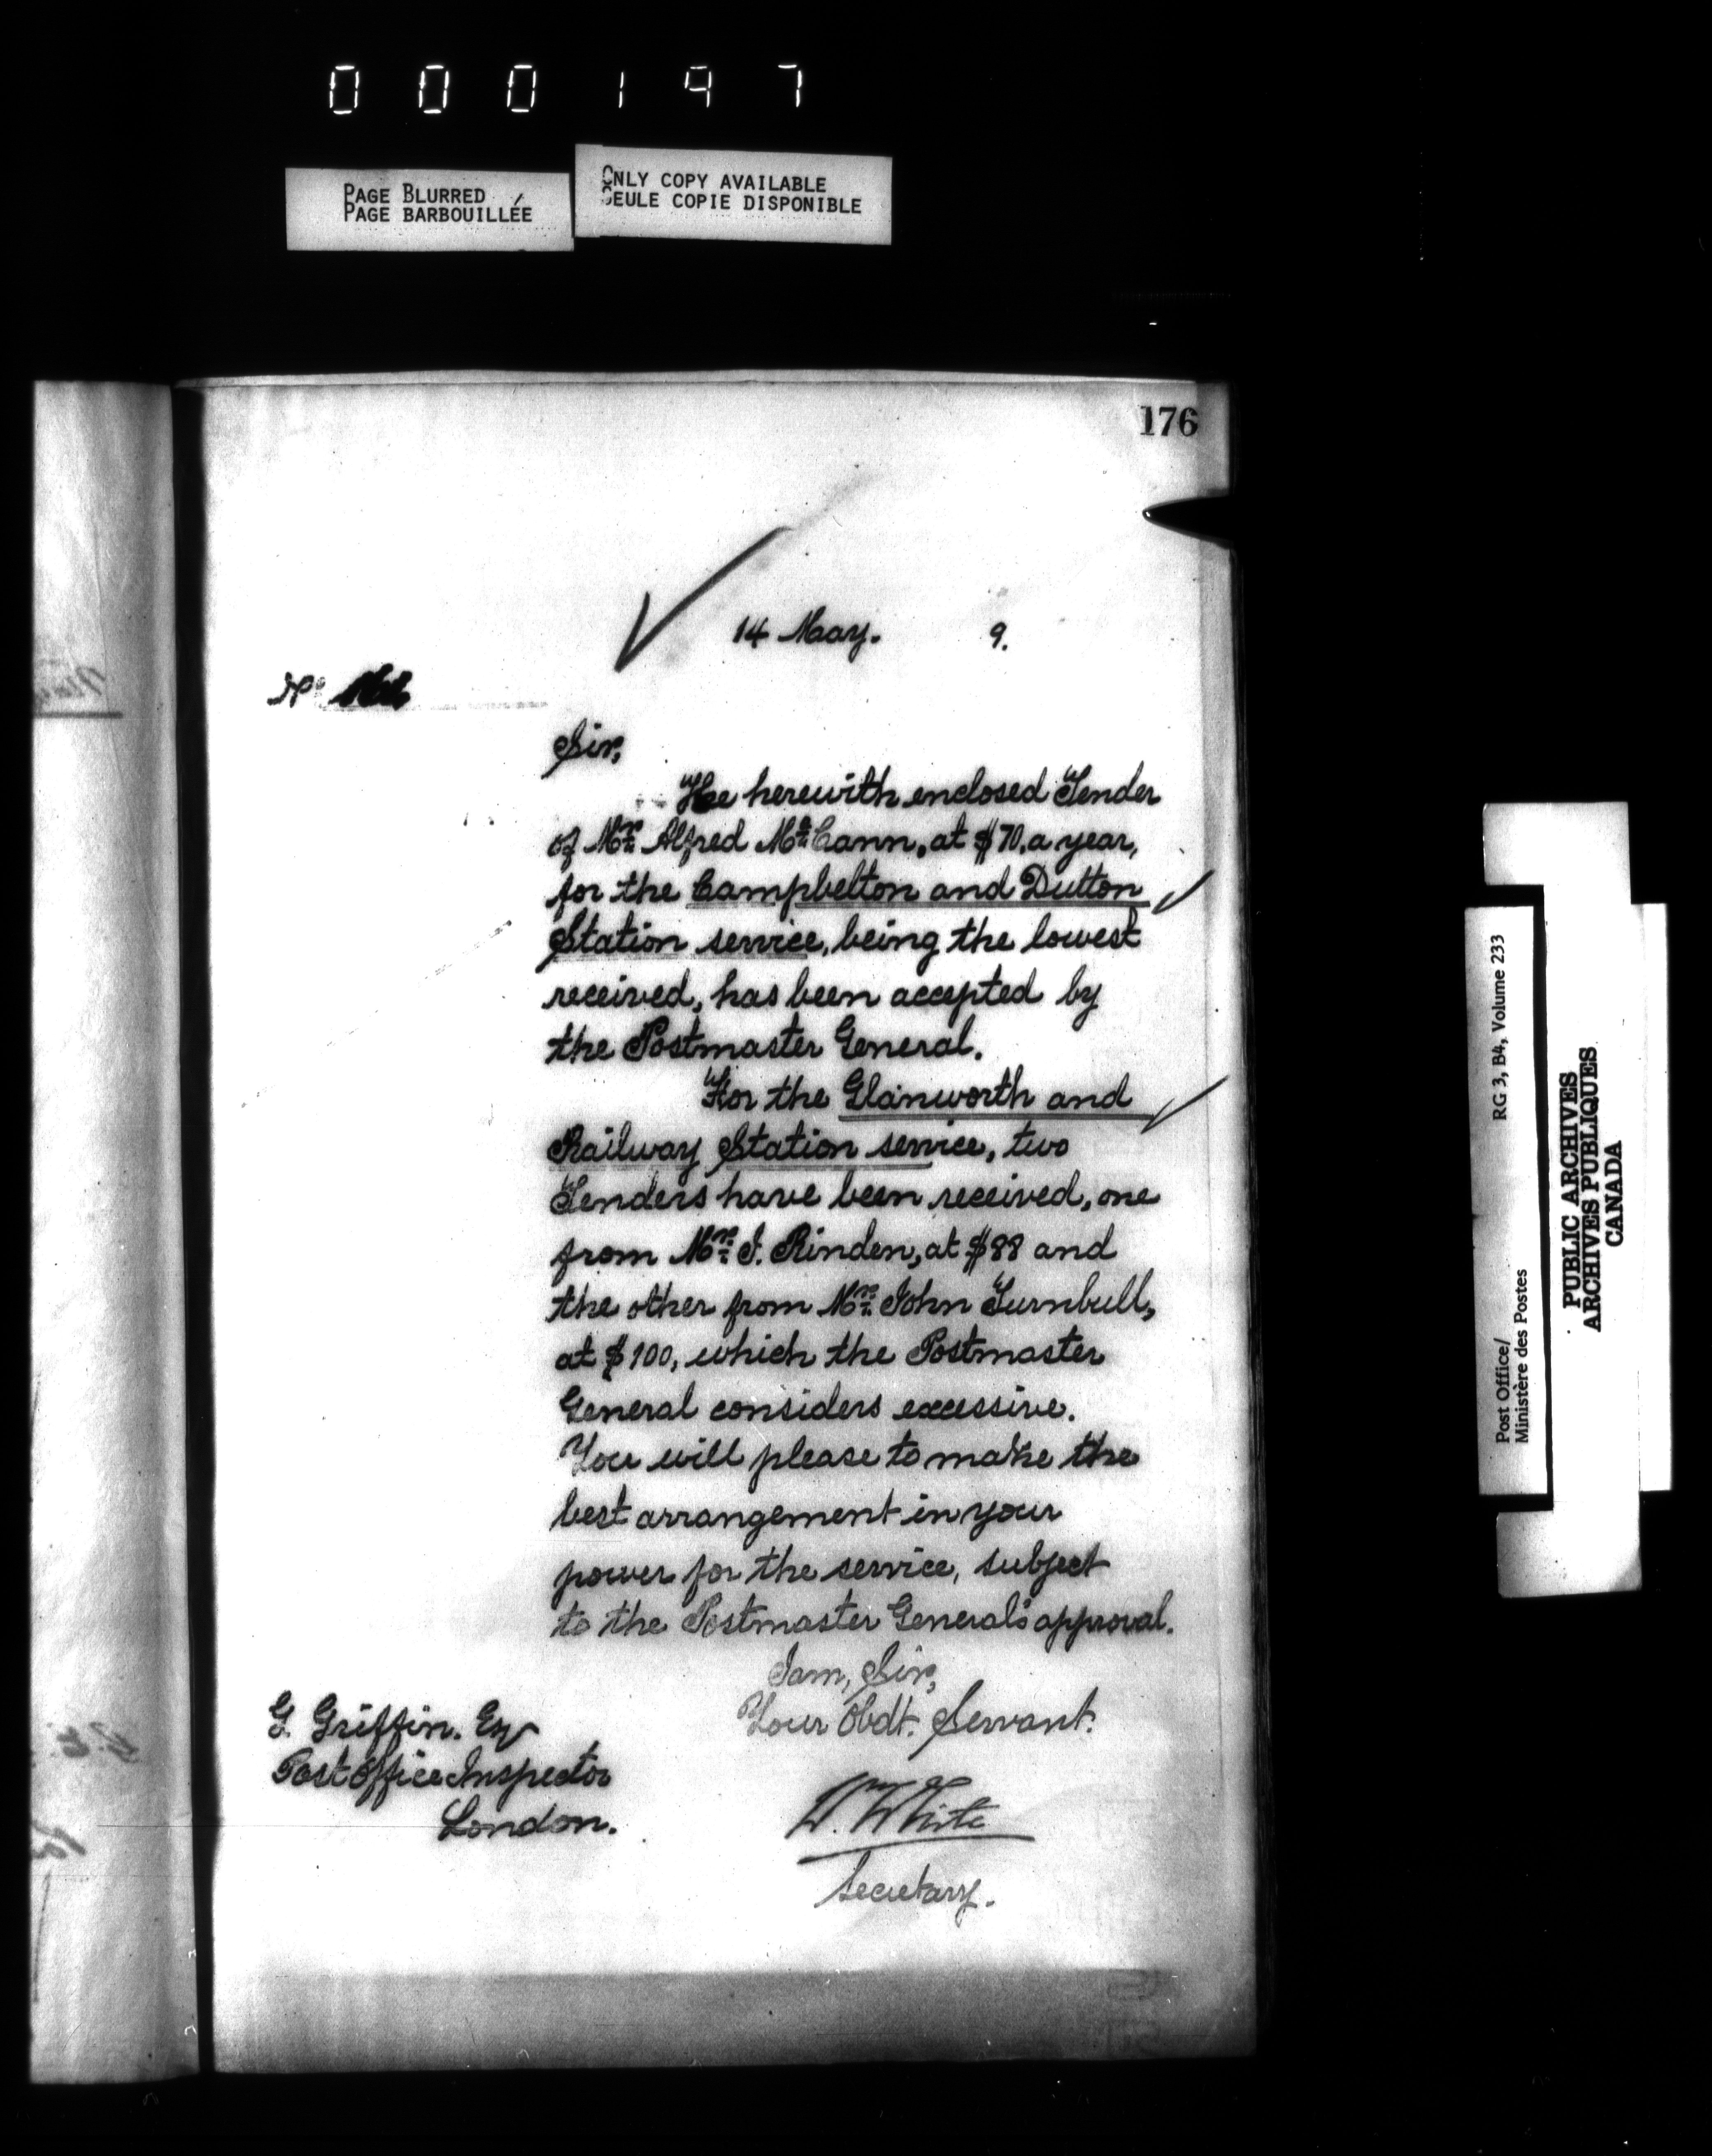 000197
PAGE BLURRED
PAGE BARBOUILLÉE
ONLY COPY AVAILABLE
SEULE COPIE DISPONIBLE
176
14 May. 9.
No.
Sir,
The herewith enclosed Tender
of Mr. Alfred McCann, at $70, a year,
for the Campbelton and Dutton
Station service, being the lowest
received, has been accepted by
the Postmaster General.
For the Glanworth and
Railway Station service, two
Tenders have been received, one
from Mr. J. Rinden, at $88 and
the other from Mr. John Turnbull,
at $100, which the Postmaster
General considers excessive.
You will please to make the
best arrangement in your
power for the service, subject
to the Postmaster General's approval.
I am, Sir,
Your Obdt. Servant.
W. White
Secretary.
G. Griffin. Esq
Post Office Inspector
London.
RG 3, B4, Volume 233
Post Office/
Ministère des Postes
PUBLIC ARCHIVES
ARCHIVES PUBLIQUES
CANADA